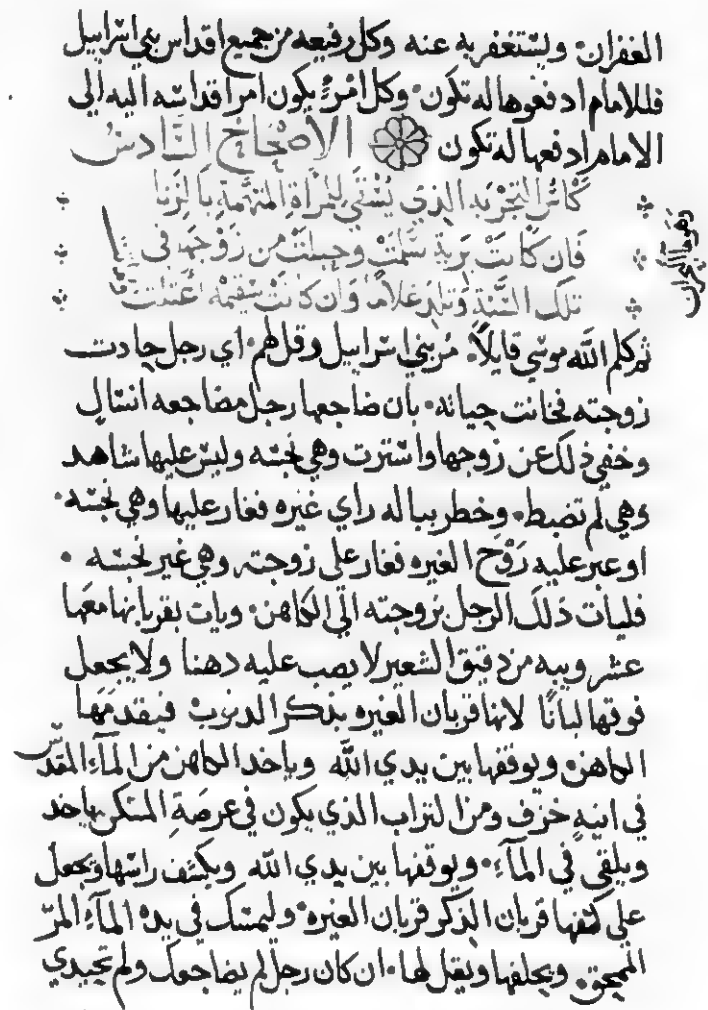 الغفران۰ ويستغفر به عنه وكل رفيعه من جميع اقداس بني اسراييل
فللامام ادفعوها له تكون۰ وكل امرءٍ يكون امر اقداسه اليه الي
الامام ادفعها له تكون الاصحاح السّادسُ
كاسُ التجربه الذي يُسْقَي للمرأة المتهمة بالزنا
فان كانتْ بَريةً سَلمتْ وحبلتْ من زَوْجها في
تلك السَّنة وتلد غلامًا وان كانتْ سقيمه اعتلت
ثم كلم الله موسي قايلاً۰ مُر بني اسراييل وقل لهم۰ اي رجل حادت
زوجته فخانت خيانه۰ بان ضاجعها رجل مضاجعه انسال
وخفي ذلك عن زوجها واستترت وهي نجسه وليس عليها شاهد
وهي لم تضبط۰ وخطر بباله راي غيره فغار عليها وهي نجسه۰
او عبر عليه رَوْح الغيره فغار علي زوجته وهي غير نجسه۰
فليات ذلك الرجل بزوجته الي الكاهن۰ ويات بقربانها معها
عشر ويبه من دقيق الشعير لا يصب عليه دهنا ولا يجعل
فوقها لبانًا لانها قربان الغيره بذكر الدنوب فيقدمها
الكاهن۰ ويوقفها بين يدي الله وياخد الكاهن من المآء المقدّس
في انيه خزف ومن التراب الذي يكون في عرصَةِ المسكن ياخد
ويلقي في المآءِ۰ ويوقفها بين يدي الله ويكشف راسها ويجعل
علي كفها قربان الذكر قربان الغيره۰ وليمسك في يده المآءِ المرّ
الممحق۰ ويحلفها ويقل لها۰ ان كان رجل لم يضاجعك ولم تحيدي